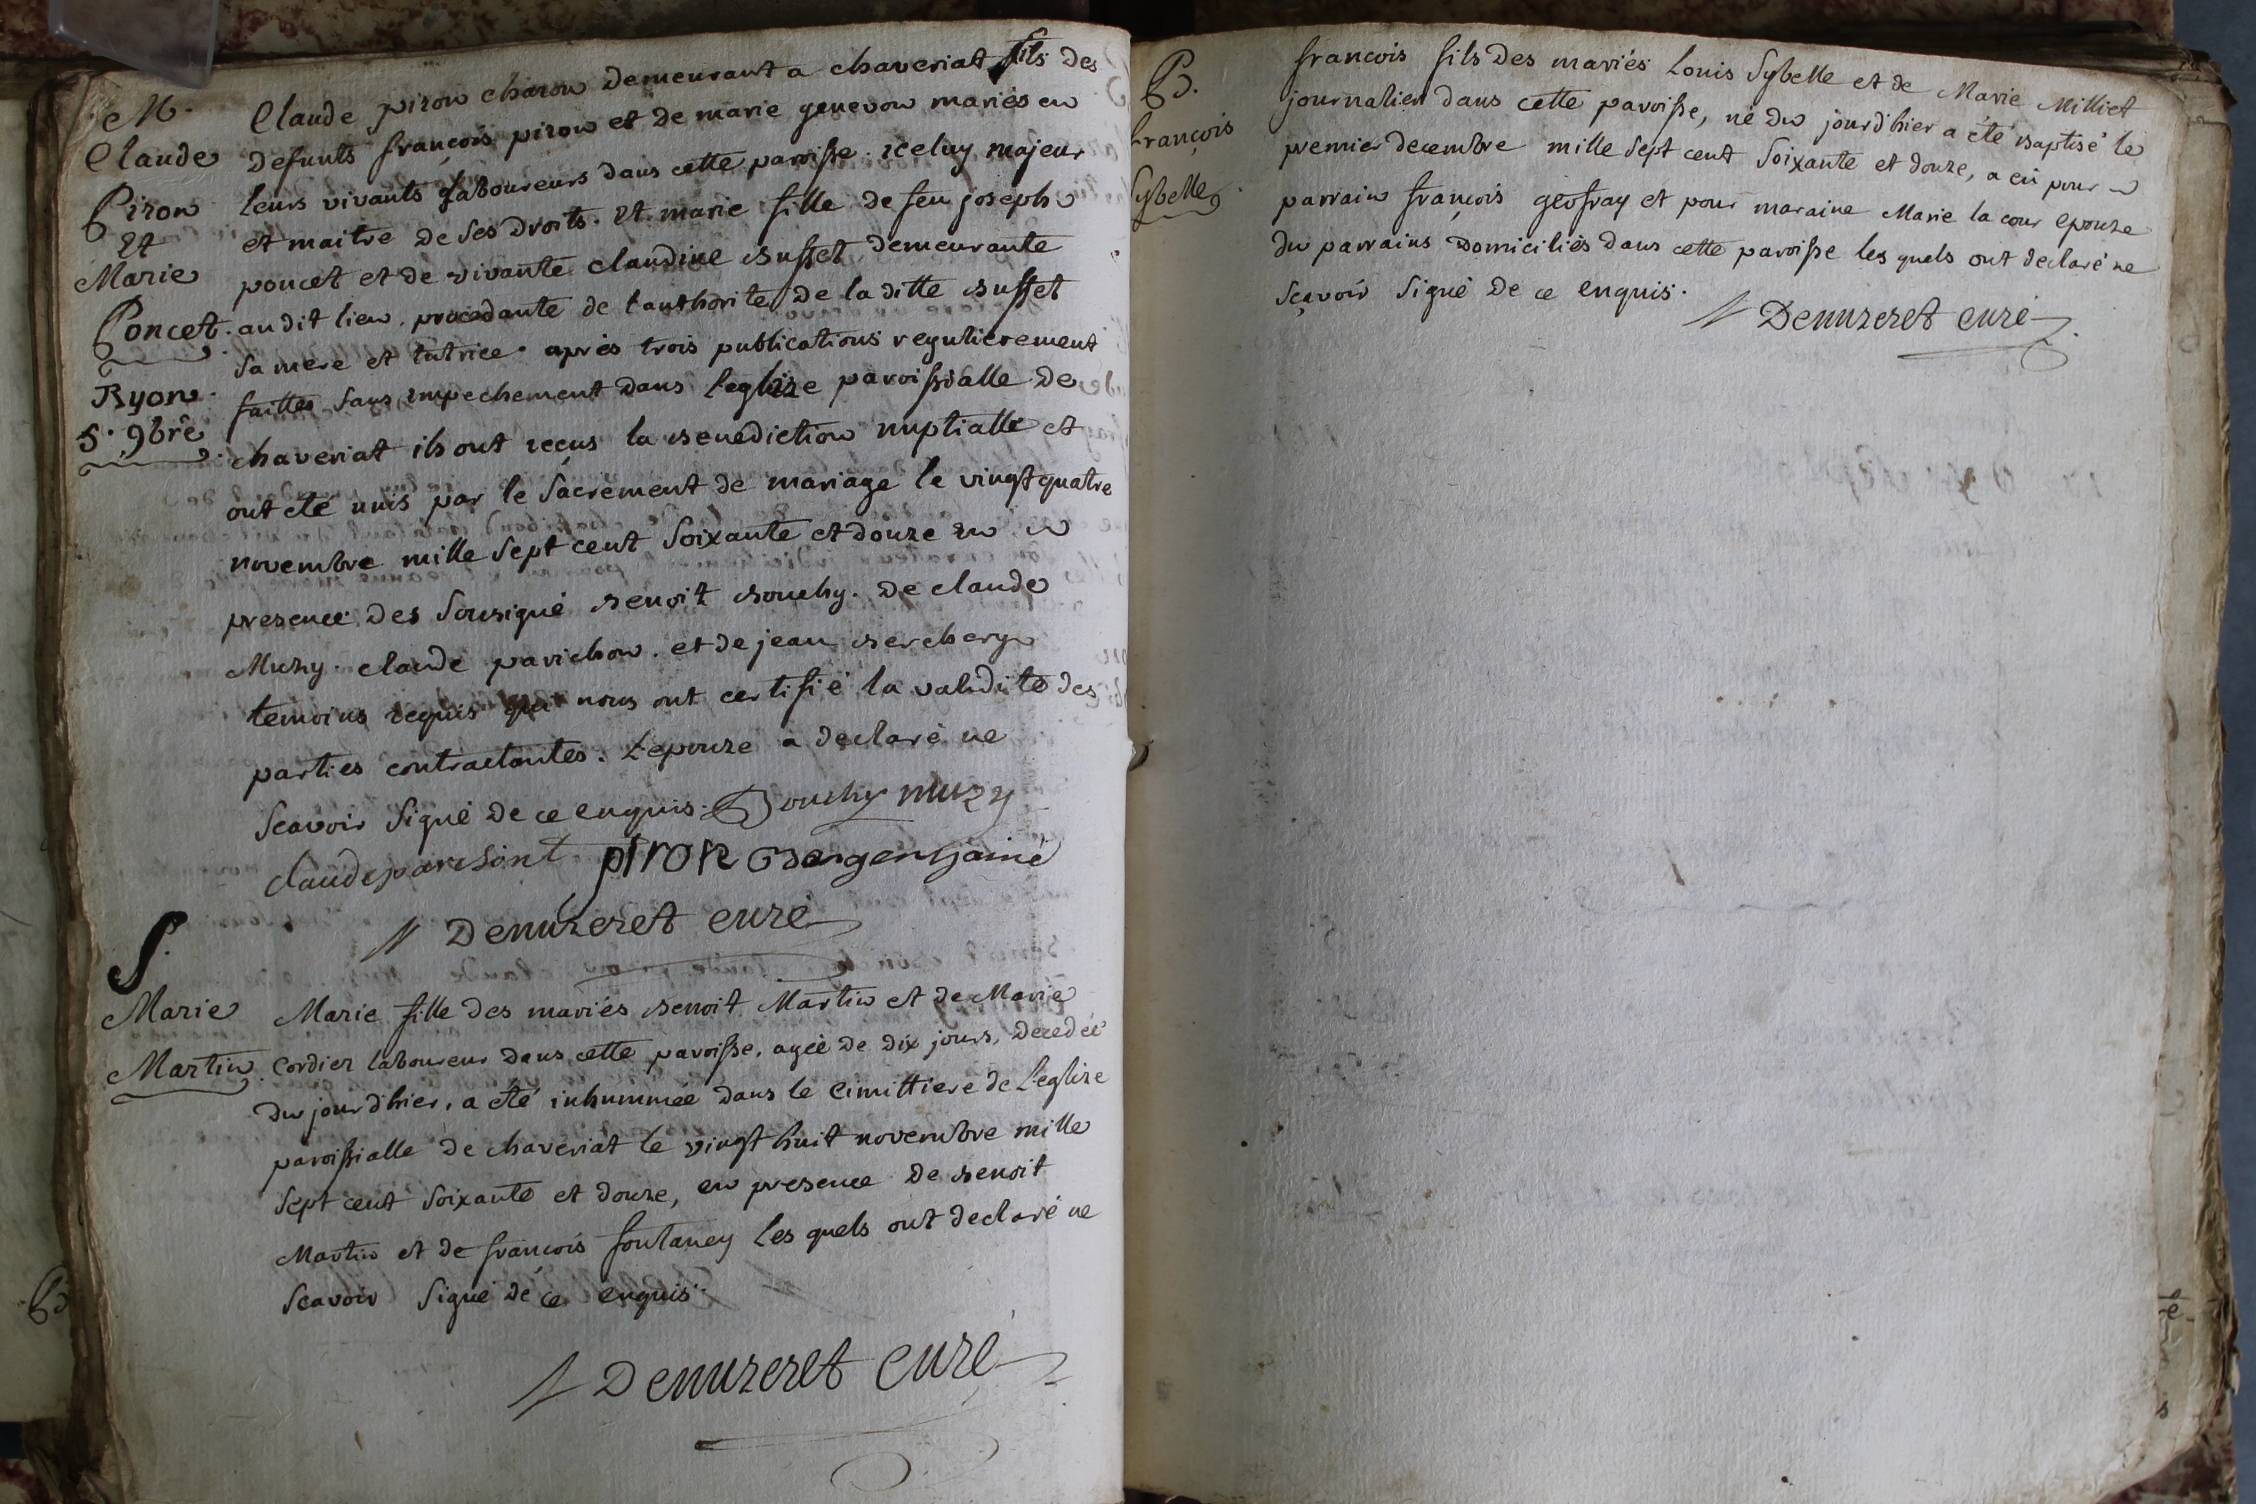 M.
Claude
Piron
Et
Marie
Poncet.
Ryon.
5. 9bre
Claude piron charon demeurant a chaveriat fils des
defunts françois piron et de marie genevon mariés en
leurs vivants laboureurs dans cette paroisse. iceluy majeur
et maitre de ses droits. Et marie fille de feu joseph
poncet et de vivante claudine Buffet demeurante
audit lieu. procedante de l'authorite de la ditte Buffet
sa mere et tutrice. après trois publications regulierement
faittes sans empechement dans leglize paroissialle de
chaveriat ils ont reçus la benediction nuptialle et
ont eté unis par le Sacrement de mariage le vingt quatre
novembre mille sept cent soixante et douze en
presence des sousigné Benoit Bouchy. de claude
Muzy. claude parichon. et de jean Berchery
temoins requis qui nous ont certifié la validité des
parties contractantes. L'epouze a declaré ne
scavoir signé de ce enquis. Bouchy muzy
claude parichont piron
Denuzeret curé
S.
Marie
Martin
Marie fille des mariés Benoit Martin et de Marie
Cordier laboureur dans cette paroisse, agée de dix jours, decedée
du jour d'hier, a été inhummée dans le cimittiere de L'eglize
paroissialle de chaveriat le vingt huit novembre mille
sept cent soixante et douze, en presence de Benoit
Martin et de françois fontaney les quels ont declaré ne
scavoir signé de ce enquis.
Denuzeret curé
B.
François
Sybelle
françois fils des mariés Louis Sybelle et de Marie Milliet
journalier dans cette paroisse, né du jour d'hier a été Baptisé le
premier decembre mille sept cent soixante et douze, a eü pour
parrain françois geofray et pour maraine Marie la cour epouze
du parrains domiciliés dans cette paroisse les quels ont declaré ne
sçavoir signé de ce enquis.
Denuzeret curé